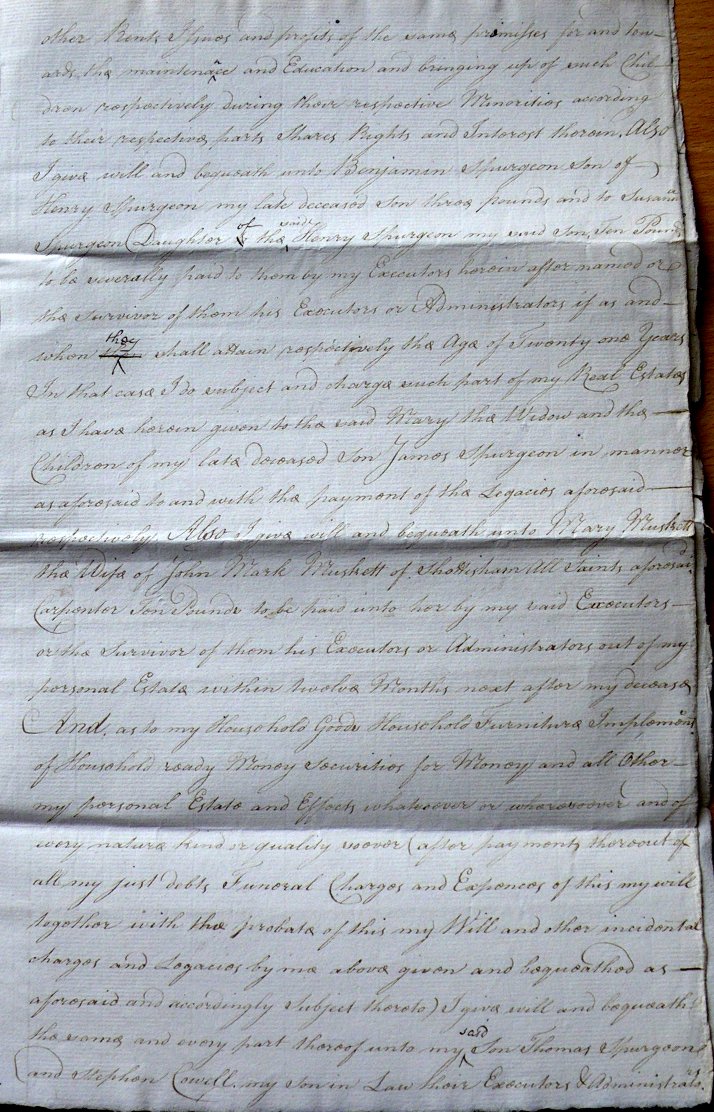 other Rents Issues and profits of the same premisses for and tow-
ards the maintenance and Education and bringing up of such Chil-
dren respectively during their respective Minorities according
to their respective parts Shares Rights and Interest therein. Also
I give will and bequeath unto Benjamin Spurgeon Son of
Henry Spurgeon my late deceased Son three pounds and to Susanna
Spurgeon Daughter of the said Henry Spurgeon my said Son, Ten Pounds
to be severally paid to them by my Executors herein after named or
the Survivor of them his Executors or Administrators if as and
when they shall attain respectively the Age of Twenty one Years
In that case I do subject and charge such part of my Real Estates
as I have herein given to the said Mary the Widow and the
Children of my late deceased Son James Spurgeon in manner
as aforesaid to and with the payment of the Legacies aforesaid
respectively. Also I give will and bequeath unto Mary Muskett
the Wife of John Mark Muskett of Shottisham All Saints aforesaid,
Carpenter Ten Pounds to be paid unto her by my said Executors
or the Survivor of them his Executors or Administrators out of my
personal Estate within twelve Months next after my decease
And, as to my Household Goods Household Furniture Implements
of Household ready Money Securities for Money and all Other
my personal Estate and Effects whatsoever or wheresoever and of
every nature kind or quality soever (after payments thereout of
all my just debts Funeral Charges and Expences of this my will
together with the probate of this my Will and other incidental
charges and Legacies by me above given and bequeathed as
aforesaid and accordingly subject thereto) I give will and bequeath
the same and every part thereof unto my said Son Thomas Spurgeon
and Stephen Cowell my Son in Law their Executors & Administrators